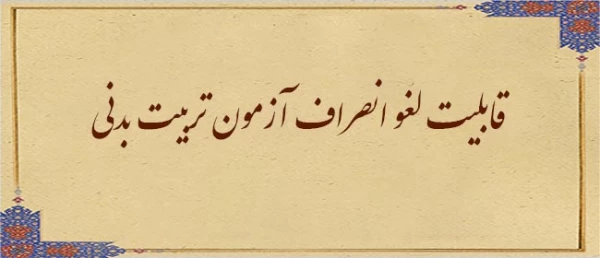 قابلیت لغو انصراف آزمون تربیت بدنی